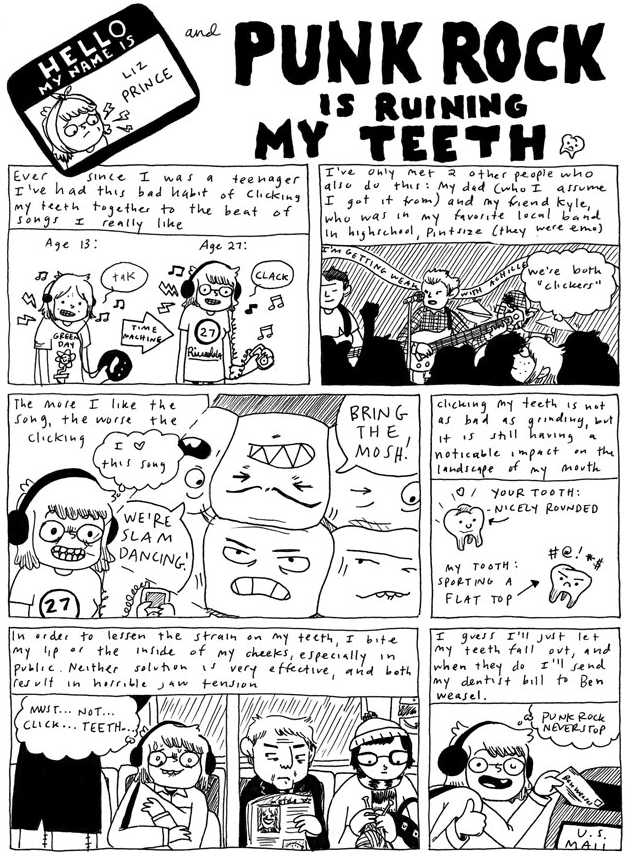 HELLO
MY NAME IS
LIZ
PRINCE
and
PUNK ROCK
IS RUINING
MY TEETH
Ever since I was a teenager
I've had this bad habit of clicking
my teeth together to the beat of
songs I really like
Age 13:
tak
GREEN
DAY
TIME
MACHINE
Age 27:
CLACK
27
I've only met 2 other people who
also do this: My dad (who I assume
I got it from) and my friend Kyle,
who was in my favorite local band
in highschool, Pintsize (they were emo)
I'M GETTING WEAK
WITH ACHILLE
we're both
"clickers"
The more I like the
song, the worse the
clicking
I ♡
this song
27
WE'RE
SLAM
DANCING!
BRING
THE
MOSH!
clicking my teeth is not
as bad as grinding, but
it is still having a
noticable impact on the
landscape of my mouth
YOUR TOOTH:
-NICELY ROUNDED
MY TOOTH:
SPORTING A
FLAT TOP
#@!*#
In order to lessen the strain on my teeth, I bite
my lip or the inside of my cheeks, especially in
public. Neither solution is very effective, and both
result in horrible jaw tension
MUST... NOT...
CLICK... TEETH...
I guess I'll just let
my teeth fall out, and
when they do I'll send
my dentist bill to Ben
Weasel.
PUNK ROCK
NEVERSTOP
Ben Weasel
U.S.
MAIL